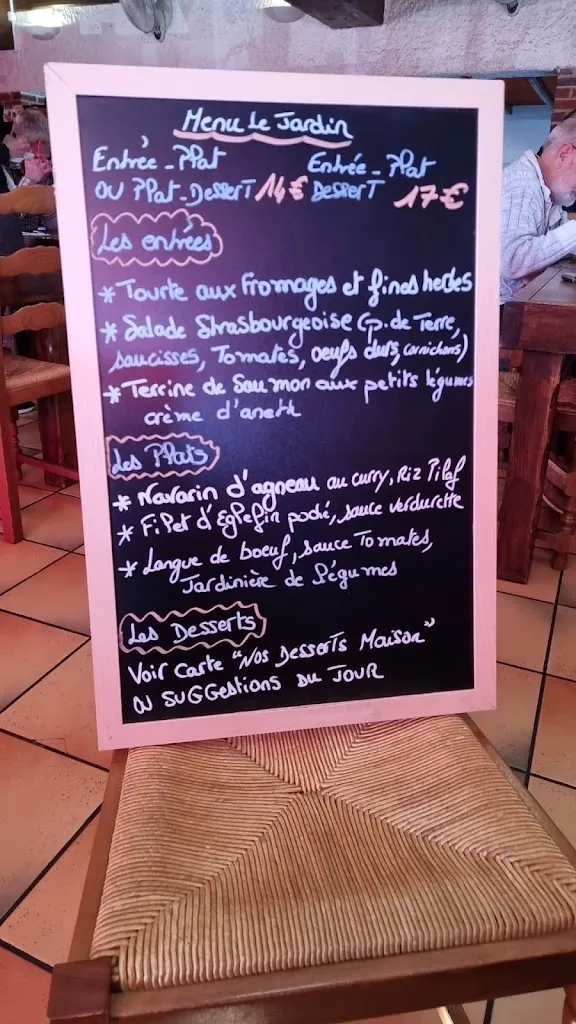 Menu Le Jardin
Entrée_Plat
OU Plat_Dessert 14€
Entrée_Plat
Dessert 17€
Les entrées
* Tourte aux fromages et fines herbes
* Salade Strasbourgeoise (p. de Terre,
saucisses, Tomates, oeufs durs, cornichons)
* Terrine de Saumon aux petits légumes
crème d'aneth
Les Plats
* Navarin d'agneau au curry, Riz Pilaf
* Filet d'Eglefin poché, sauce verdurette
* Langue de boeuf, sauce Tomates,
Jardinière de Légumes
Les Desserts
Voir Carte "Nos Desserts Maison"
OU SUGGestions Du Jour